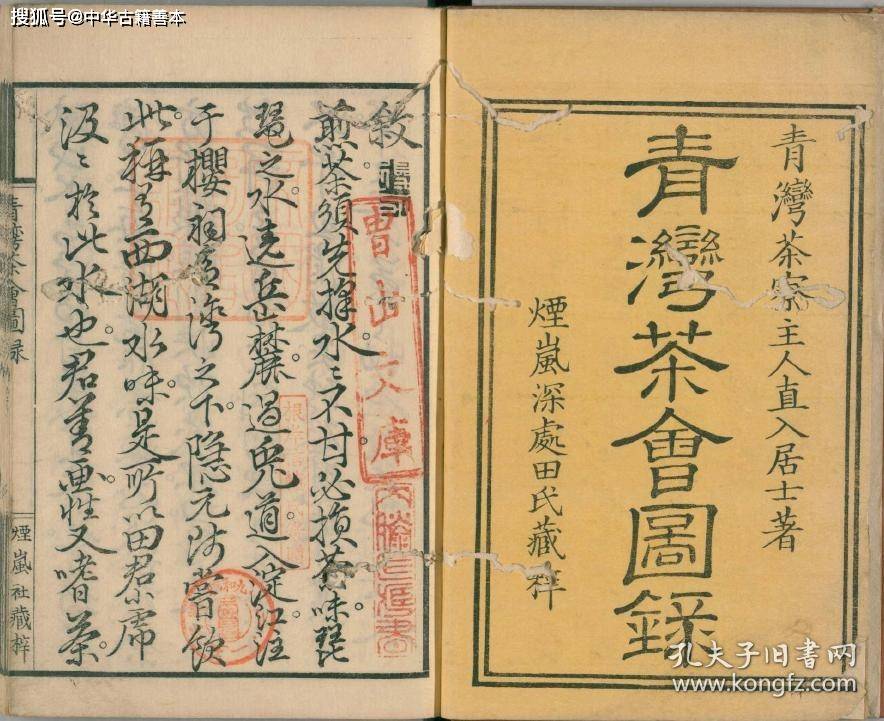 搜狐号@中华古籍善本
青灣茶寮主人直入居士著
青灣茶會圖錄
煙嵐深處田氏藏梓
敘
煎茶須先擇水。〻不甘必損茶味。琵
琶之水遶岳麓。過兎道入淀江。注
于櫻祠青湾之下。隱元師嘗飲
此。稱有西湖水味。是所以田君小席
汲〻於此水也。君善画。性又嗜茶。
青灣茶會圖录
煙嵐社藏梓
曹山文庫
孔夫子旧书网
www.kongfz.com